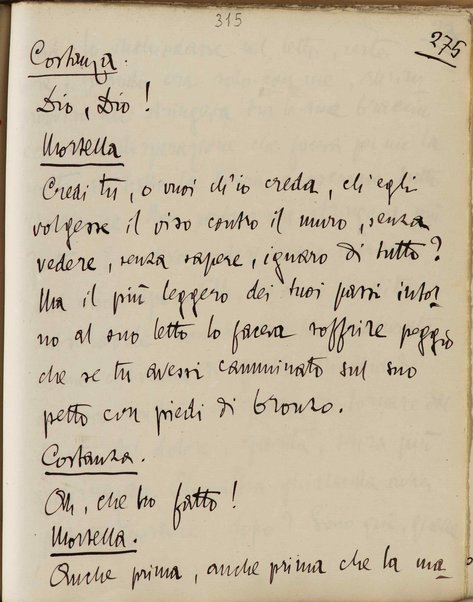 315
275
Costanza.
Dio, Dio!
Mortella
Credi tu, o vuoi ch'io creda, ch'egli
volgesse il viso contro il muro, senza
vedere, senza sapere, ignaro di tutto?
Ma il più leggero dei tuoi passi intor-
no al suo letto lo faceva soffrire peggio
che se tu avessi camminato sul suo
petto con piedi di bronzo.
Costanza.
Oh, che ho fatto!
Mortella.
Anche prima, anche prima che la ma-